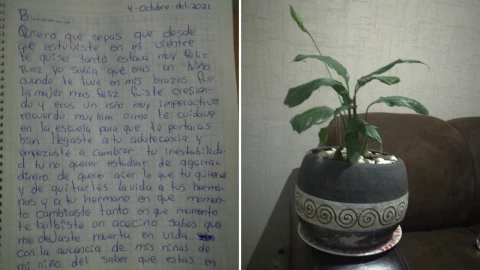 4-octubre-del-2021
B
Quiero que sepas que desde
que estuviste en mi vientre
te quise tanto estava muy feliz
Puez ya sabia que eras un niño
cuando te tuve en mis brazos fue
la mujer mas feliz fuiste cresian-
do y eras un niño muy imperactivo
recuerdo muy bien como te cuidava
en la escuela para que te portaras
bien llegaste a tu adolecencia y
empezaste a cambiar tu inestabilida
d tu no querer estudiar de agarrar
dinero de querer acer lo que tu quieras
y de quitarles la vida a tus herma-
nas y a tu hermano en que momen-
to cambiaste tanto en que momento
te bolbiste un acecino sabes que
me dejaste muerta en vida
con la aucencia de mis niñas de
mi niño del saber que estas en